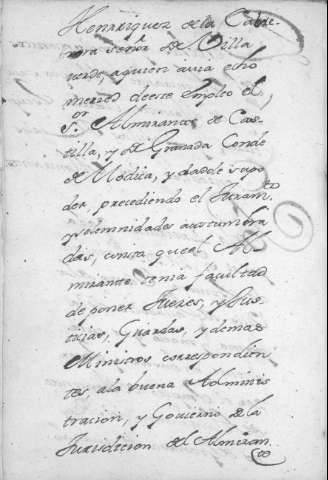 Henrriquez de la Cabre-
ra señor de Villa
verde aquien avia echo
merced deeste Empleo el
S.or Almirante de Cas-
tilla, y de Granada Conde
de Modica, y dadole su po
der precediendo el Juram.to
y solemnidades acostumbra
das, consta que el Al-
mirante tenia facultad
de poner Juezes, y Jus-
ticias, Guardas, y demas
Ministros correspondien
tes, ala buena Adminis
tracion, y Govierno de la
Jurisdicion del Almiran